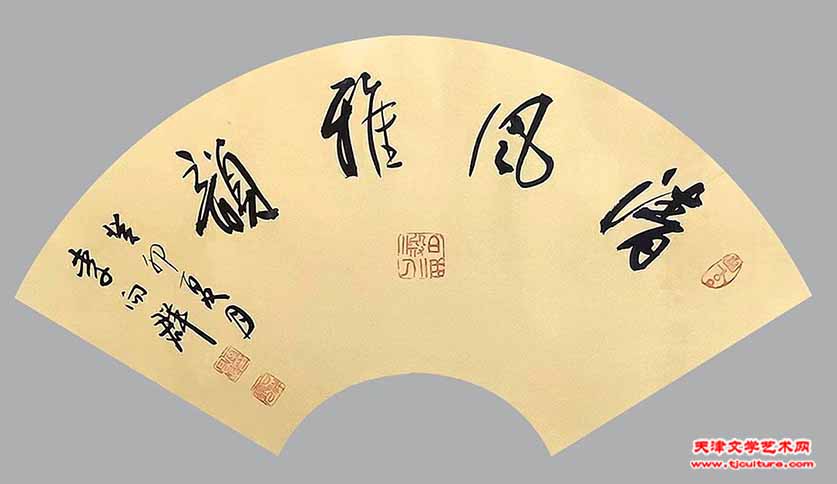 清风雅韻
癸卯夏月
李向群
天津文学艺术网
www.tjculture.com